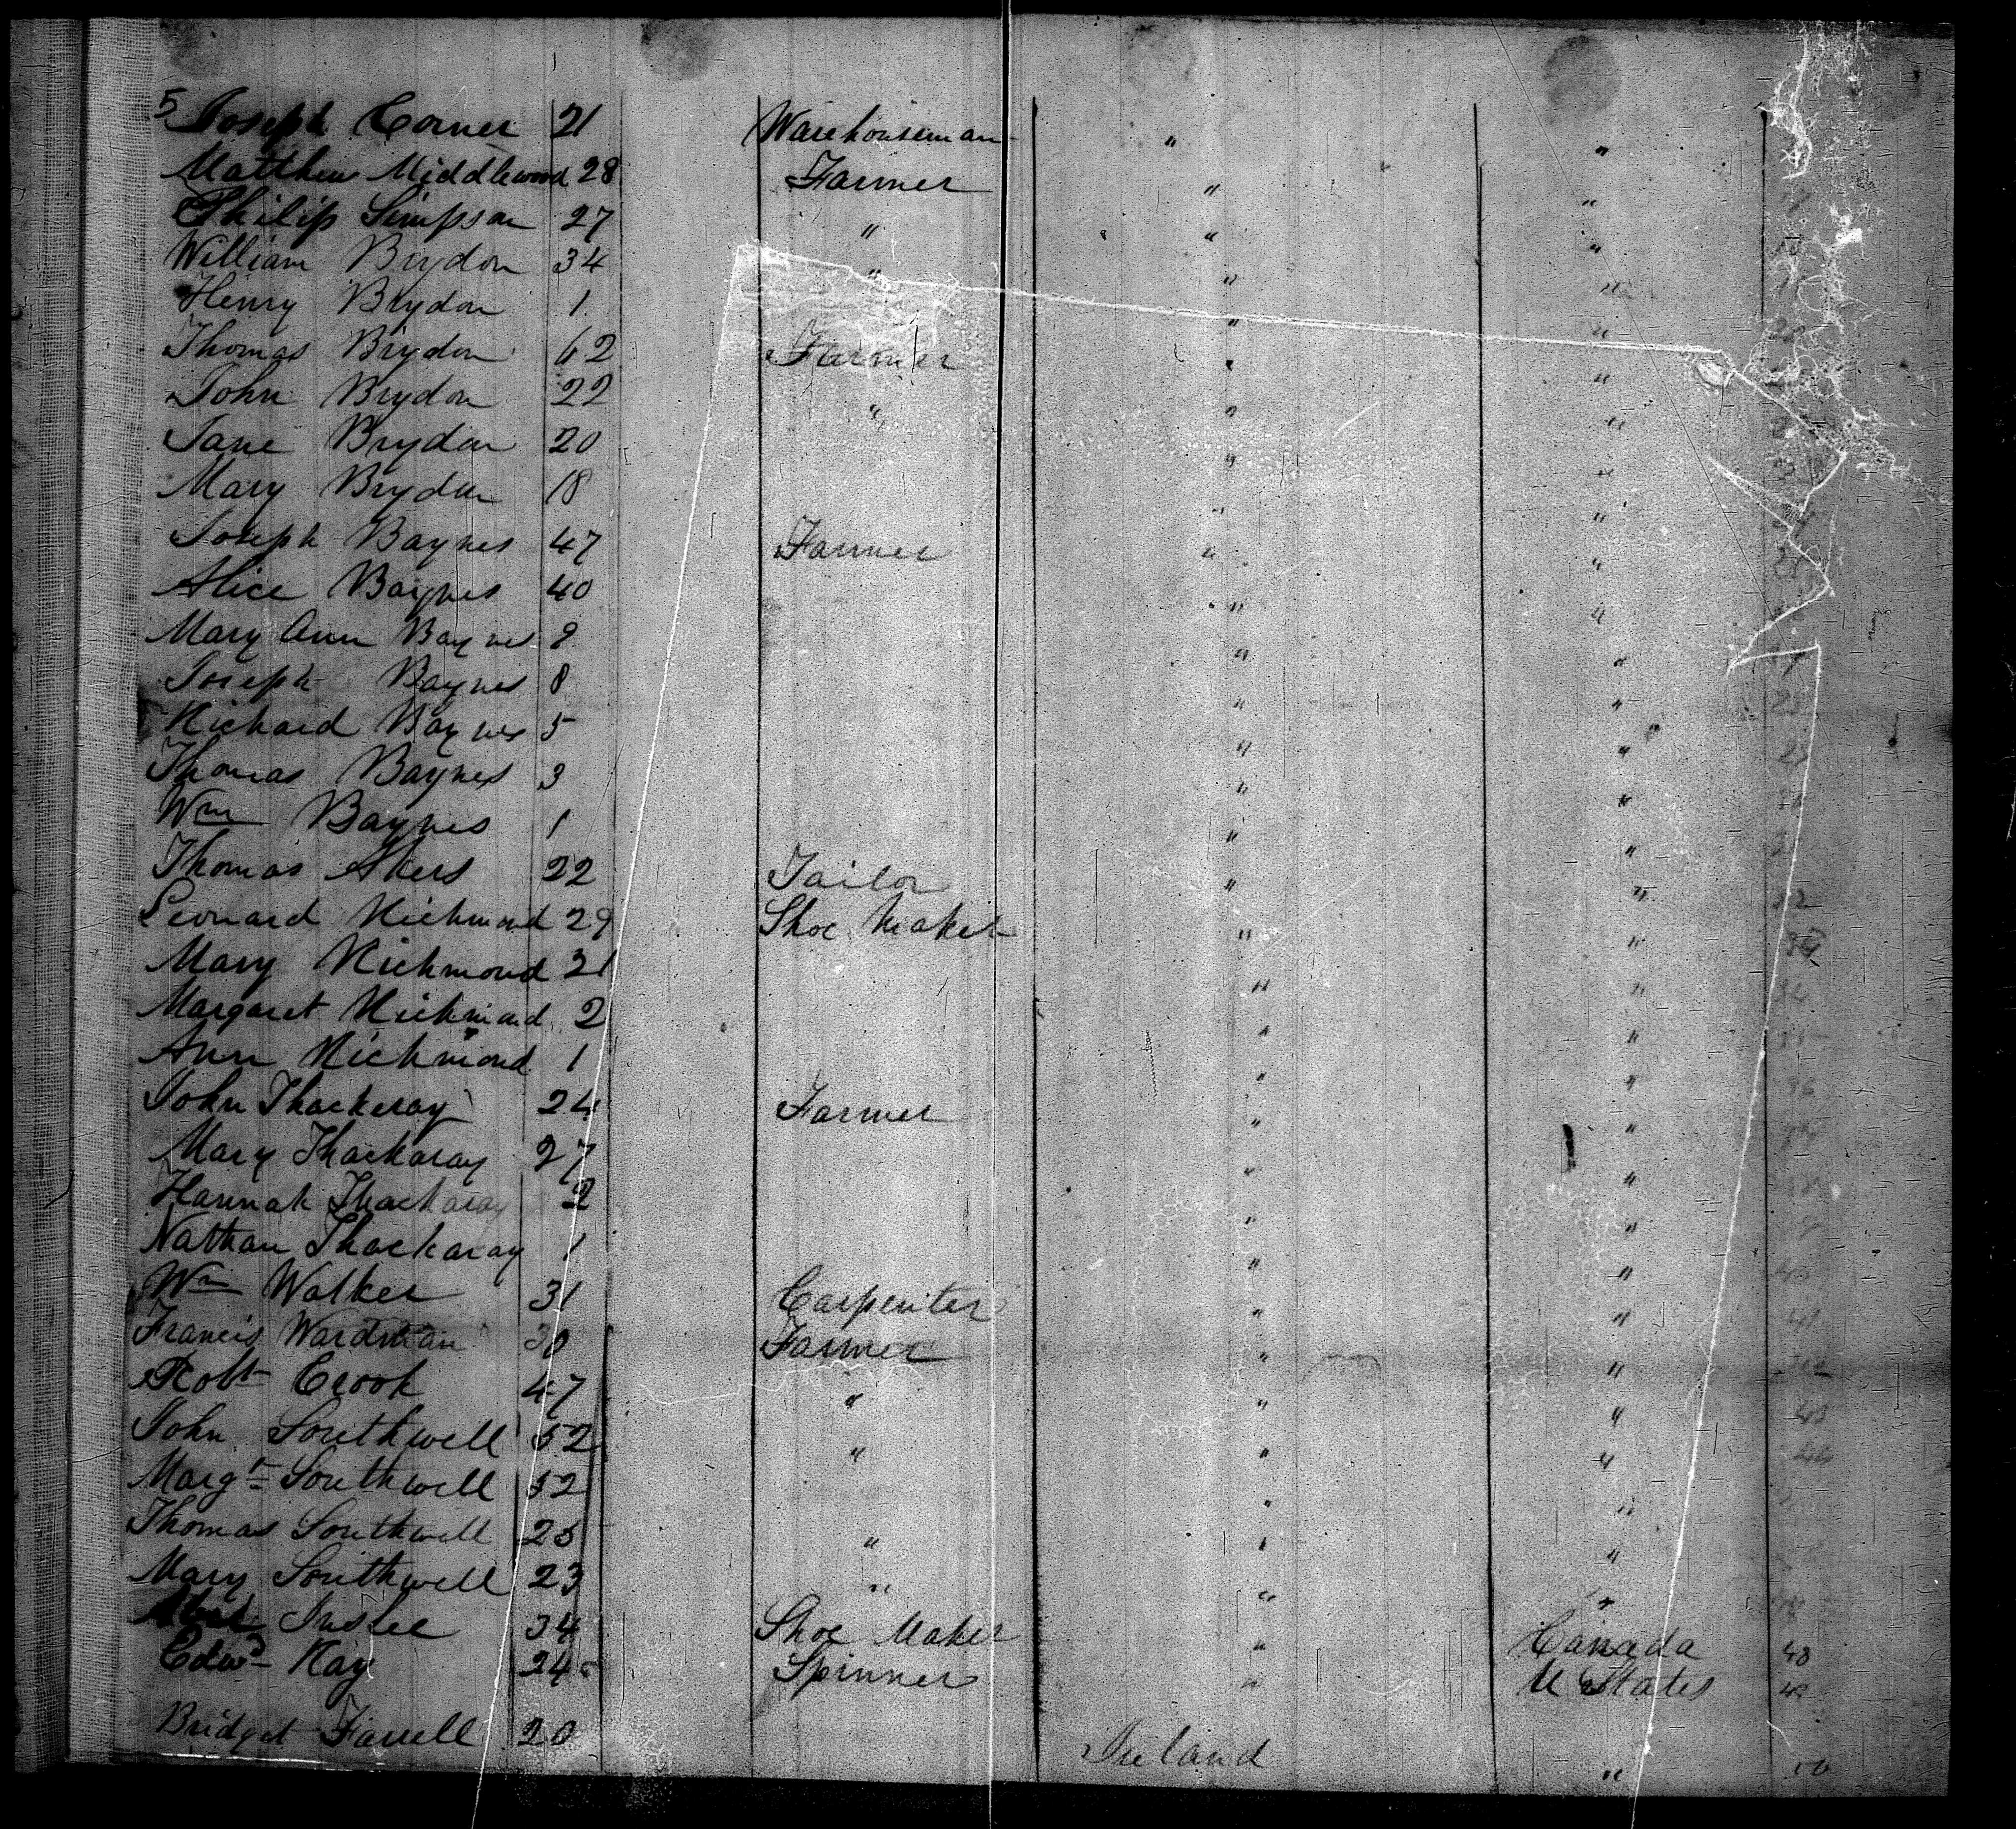 5 Joseph Corner 21 Warehouseman " "
Matthew Middlewood 28 Farmer " "
Philip Simpson 27 " " "
William Brydon 34 " " "
Henry Brydon 1 " "
Thomas Brydon 62 Farmer " "
John Brydon 22 " " "
Jane Brydon 20 " "
Mary Brydon 18 " "
Joseph Baynes 47 Farmer " "
Alice Baynes 40 " "
Mary Ann Baynes 9 " "
Joseph Baynes 8 " "
Richard Baynes 5 " "
Thomas Baynes 3 " "
Wm Baynes 1 " "
Thomas Akers 22 Tailor " "
Leonard Richmond 29 Shoe Maker " "
Mary Richmond 31 " "
Margaret Richmond 2 " "
Ann Richmond 1 " "
John Thackeray 24 Farmer " "
Mary Thackaray 27 " "
Hannah Thackaray 2 " "
Nathan Thackaray 1 " "
Wm Walker 31 Carpenter " "
Francis Wardman 30 Farmer " "
Robt Crook 47 " " "
John Southwell 52 " " " 44
Margt Southwell 52 " "
Thomas Southwell 25 " " "
Mary Southwell 23 " " "
Inslee 34 Shoe Maker " Canada 48
Edwd Kay 24 Spinner " U States
Bridget Farrell 20 Ireland "